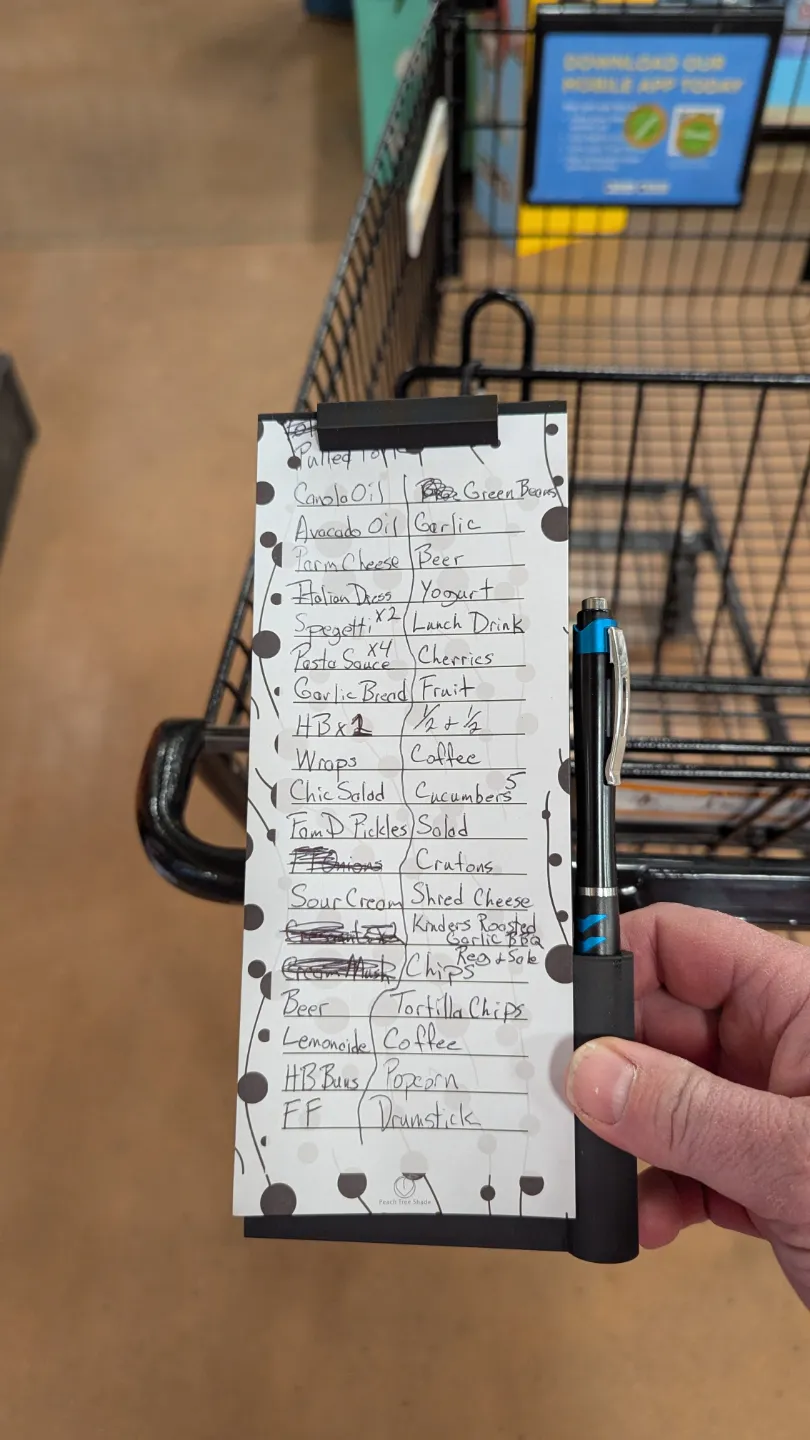 DOWNLOAD OUR
MOBILE APP TODAY
Pulled
Canola Oil
Avocado Oil
Parm Cheese
Italian Dress
Spegetti x2
Pasta Sauce x4
Garlic Bread
HB x 2
Wraps
Chic Salad
Fam D Pickles
Sour Cream
Beer
Lemonade
HB Buns
FF
Green Beans
Garlic
Beer
Yogurt
Lunch Drink
Cherries
Fruit
1/2 + 1/2
Coffee
Cucumbers 5
Salad
Crutons
Shred Cheese
Kinders Roasted
Garlic BBQ
Chips Reg + Sole
Tortilla Chips
Coffee
Popcorn
Drumstick
Peach Tree Shade